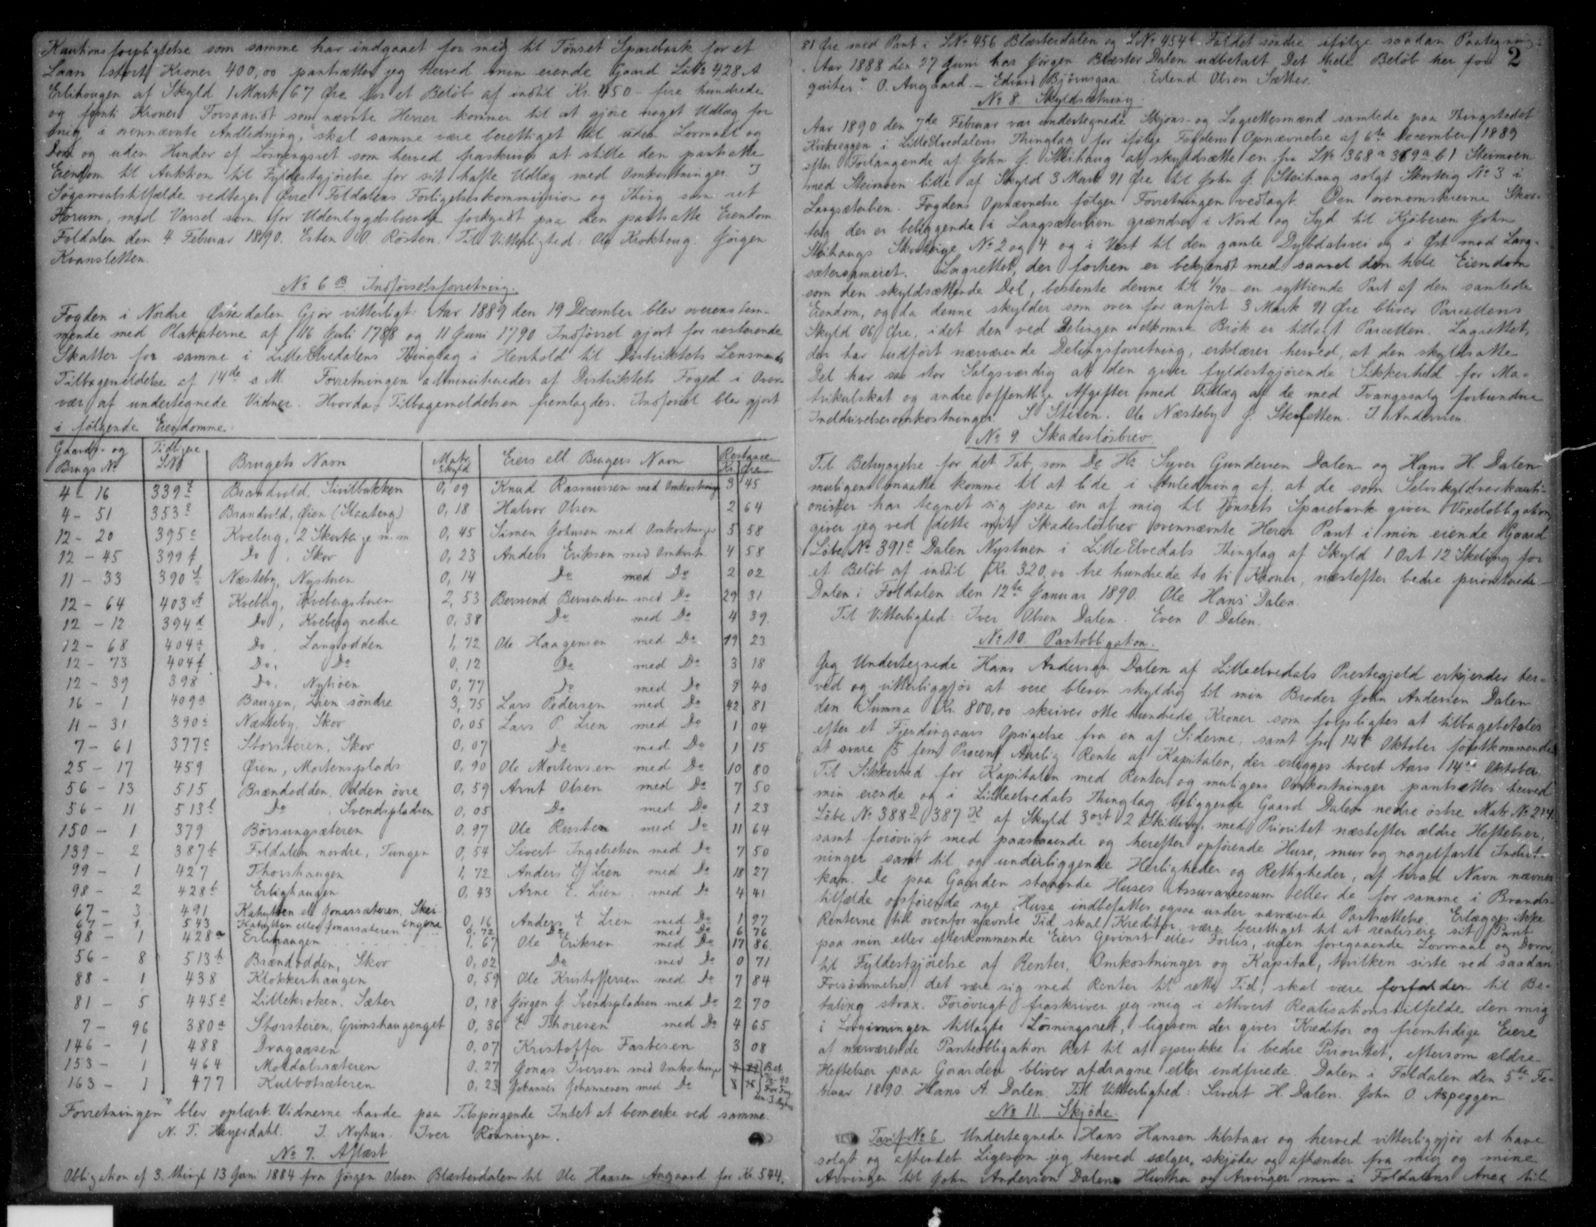 Kautionsforpligtelse som samme har indgaaet for mig til Tönset Sparebank for et
Laan stort Kroner 400,00 pantsætter jeg herved min eiende Gaard LöNo 428 A
Erlihaugen af Skyld 1 Mark 67 Öre for et Belöb af indtil Kr 450 - fire hundrede
og femti Kroner. Forsaavidt som nævnte Herrer kommer til at gjöre noget Udlæg for
mig i ovennævnte Anledning, skal samme være berettiget til uden Lovmaal og
Dom og uden Hinder af Lösningsret som herved fraskrives at stille den pantsatte
Eiendom til Auktion til Fyldestgjörelse for sit havte Udlæg med Omkostninger. I
Sögsmaalstilfælde vedtages Övre Foldalens Forligelseskommission og Thing som ret
Forum, med Varsel som for Udenbygdsboende forkyndt paa den pantsatte Eiendom
Foldalen den 4 Februar 1890. Esten O Rösten. Til Vitterlighed: Ole Krokhaug. Jörgen
Kvansletten.
No 6 B Indförselsforretning.
Fogden i Nordre Österdalen Gjör vitterligt: Aar 1889 den 19 December blev overensstem-
mende med Plakaterne af 16 Juli 1788 og 11 Juni 1790 Indförsel gjort for resterende
Skatter for samme i Lille Elvedalens Thinglag i Henhold til Distriktets Lensmands
Tilbagemeldelse af 14de s. M. Forretningen administreredes af Distriktets Foged i Over-
vær af undertegnede Vidner. Hvorda Tilbagemeldelsen fremlagdes. Indförsel blev gjort
i fölgende Eiendomme:
Gaards- og Brugs No | Tidligere LNo | Brugets Navn | Matr. Skyld | Eiers ell. Brugers Navn | Restancer Kr Öre
4 - 16 339 Brandvold, Sivilbakken 0,09 Knud Rasmussen med Omkostninger 3 45
4 - 51 353 Brandvold, Öien (Skaateng) 0,18 Halvor Olsen 2 64
12 - 20 395c Kveberg, 2 Skovteige m.m 0,45 Simen med Omkostninger 5 58
12 - 45 399f Do, Skov 0,23 Anders Eriksen med Omkostn 4 58
11 - 33 390 Næsteby, Nystuen 0,14 Do med Do 2 02
12 - 64 403 A Kveberg, Kvebergstuen 2,53 Bernend Bernendsen med Do 29 31
12 - 12 394d Do, Kveberg nedre 0,38 Do med Do 4 39
12 - 68 404a Do. Langodden 1,72 Ole Haagensen med Do 19 23
12 - 73 404f Do, Do 0,12 Do med Do 3 18
12 - 39 398 Do. Nytröen 0,77 Do med Do 9 40
16 - 1 409a Baugen, Lien söndre 3,75 Lars Pedersen med Do 42 81
11 - 31 390c Næsteby, Skov 0,05 Lars P. Lien med Do 1 04
7 - 61 377c Storsteren, Skov 0,07 Do med Do 1 15
25 - 17 459 Öien, Mortensplads 0,90 Ole Mortensen med Do 10 80
56 - 13 515 Brændodden, Odden övre 0,59 Arnt Olsen med Do 7 50
56 - 11 513f Do. Svendspladsen 0,05 Do med Do 1 23
150 - 1 379 Börsungsæteren 0,97 Ole Rusten med Do 11 64
139 - 2 387f Foldalen nordre, Tungen 0,54 Sivert Ingebretsen med Do 7 50
99 - 1 427 Thorshaugen 1,72 Anders E Lien med Do 18 27
98 - 2 428f Erlighaugen 0,43 Arne E. Lien med Do 4 41
67 - 3 491 Kahytten el Jonassæteren, Skei 0,16 Anders E Lien med Do 1 97
67 - 1 543 Kahytten eller Jonassæteren engene 0,72 Do med Do 6 76
98 - 1 428a Erlihaugen 1,67 Ole Eriksen med Do 17 86
56 - 8 513b Brændodden, Skov 0,02 Do med Do 0 71
88 - 1 438 Klokkerhaugen 0,59 Ole Kristoffersen med Do 7 84
81 - 5 445a Lillekroken, Sæter 0,18 Jörgen J. Svendspladsen med Do 2 70
7 - 96 380a Storsteren, Grimshaugenget 0,36 E Thoresen med Do 4 65
146 - 1 488 Dragaasen 0,07 Kristoffer Fastesen 3 08
153 - 1 464 Motdalssæteren 0,27 Jonas Iversen med Omkostninger
163 - 1 477 Kulbotsæteren 0,23 Johannes Johannesen med Do
Forretningen blev oplæst. Vidnerne havde paa Tilspörgende Intet at bemerke ved samme
N. T. Heyerdahl. I. Nyhus. Iver Rönningen.
No 7. Aflæst
Obligation af 3. thingl 13 Juni 1884 fra Jörgen Olsen Blæsterdalen til Ole Haasen Avgaard for Kr. 544.
2
81 Öre med Pant i LNo 456 Blæsterdalen og LNo 454b Foldet söndre ifölge saadan Paategning:
"Aar 1888 den 27 Juni har Jörgen Blæster Dalen udbetalt Det Hele Belöb her for
qviteres" O. Avgaard - Edvard Björnsgaa. Erlend Olsen Sætter.
No 8 Skyldsætning
Aar 1890 den 7de Februar var undertegnede Skjöns- og Lagrettesmænd samlede paa Thingstedet
Kirkeeggen i Lille Elvedalens Thinglag for ifölge Fogdens Opnævnelse af 6te December 1889
efter Forlangende af John J. Steihaug at skyldsætte en fra LNo 368a 369a b1 Steimoen
med Steimoen lille af Skyld 3 Mark 91 Öre til John J. Steihaug solgt Skovteig No 3 i
Langsæterlien. Fogdens Opnævnelse fölger Forretningen vedlagt. Den ovenomskrevne Skov-
teig der er beliggende i Langsæterlien grændser i Nord og Syd til Kjöberen John
Steihaugs Skovteige No 2 og 4 og i Vest til den gamle Dylbdalsvei og i Öst mod Lang-
sætersameiet. Lagrettet, der forhen er bekjendt med saavel den hele Eiendom
som den skyldsættende Del, bestemte denne til 1/70 en syttiende Part af den samlede
Eiendom, og da denne skylder som oven for anfört 3 Mark 91 Öre bliver Parcellens
Skyld 06 Öre, idet den ved Delingen udkomne Brök er tillagt Parcellen. Lagrettet,
der har udfört nærværende Delingsforretning, erklærer herved, at den skyldsatte
Del har saa stor Salgsværdig at den giver fyldestgjörende Sikkerhed for Ma-
trikulskat og andre offentlige Afgifter med Tillæg af de med Tvangssalg forbundne
Inddrivelsesomkostninger. S Steien. Ole Næsteby J. Sletten. T Andersen.
No 9 Skadeslösbrev
Til Betryggelse for det Tab, som De Hr. Syver Gundersen Dalen og Hans H. Dalen
muligens maatte komme til at lide i Anledning af, at de som Selvskyldnerkauti-
onister har tegnet sig paa en af mig til Tönsets Sparebank given Vexelobligation
giver jeg ved dette mit Skadeslösbrev ovennævnte Herrer Pant i min eiende Gaard
Löbe No 391c Dalen Nystuen i Lille Elvedals Thinglag af Skyld 1 Ort 12 Skilling for
et Belöb af indtil Kr 320,00 tre hundrede to ti Kroner, næstefter bedre prioriterede
Dalen i Foldalen den 12te Januar 1890 Ole Hans Dalen.
Til Vitterlighed: Iver Olsen Dalen. Even O Dalen.
No 10. Pantobligation.
Jeg Undertegnede Hans Andersen Dalen af Lilleelvedals Prestegjeld erkjender her-
ved og vitterliggjör at være bleven skyldig til min Broder John Andersen Dalen
den Summa Kr 800,00 skriver otte hundrede Kroner som forpligtes at tilbagebetales
efter et Fjerdingaars Opsigelse fra en af Siderne, samt fra 14de Oktober förstkommende
at svare 5 fem Procent Aarlig Rente af Kapitalen, der erlægges hvert Aars 14de Oktober.
Til Sikkerhed for Kapitalen med Renter og mulige Omkostninger pantsættes herved
min eiende og i Lilleelvedals Thinglag beliggende Gaard Dalen nedre östre Matr. No 214
Löbe No 388b 387 af Skyld 3 ort 2 Skilling, med Prioritet næstefter ældre Heftelser,
samt forövrigt med paastaaende og herefter opförende Huse, mur og nagelfaste Indret-
ninger samt til og underliggende Herligheder og Rettigheder, af hvad Navn nævnes
kan. De paa Gaarden staaende Huses Assurancesum eller de for samme i Brands-
tilfælde opförende nye Huse indbefattes ogsaa under nærværende Pantsættelse. Erlægges ikke
Renterne til ovenfor nævnte Tid skal Kreditor være berettiget til at realisere sit Pant
paa min eller efterkommende Eiers Gevinst eller Forlis, uden foregaaende Lovmaal og Dom
til Fyldestgjörelse af Renter, Omkostninger og Kapital, hvilken siste ved saadan
Forsömmelse det være sig med Renter til rette Tid, skal være forfalden til Be-
taling strax. Forövrigt fraskriver jeg mig i ethvert Realisationstilfælde den mig
i Lovgivningen tillagte Lösningsret, ligesom der gives Kreditor og fremtidige Eiere
af nærværende Pantobligation Ret til at oprykke i bedre Prioritet, eftersom ældre
Heftelser paa Gaarden bliver afdragne eller indfriede. Dalen i Foldalen den 5te Fe-
bruar 1890. Hans A. Dalen. Til Vitterlighed: Sivert H. Dalen. John O. Aspeggen
No 11. Skjöde.
Tarif No 6 Undertegnede Hans Hansen tilstaar og herved vitterliggjör at have
solgt og afhendet Ligesom jeg herved sælger, skjöder og afhænder fra mig og mine
Arvinger til John Andersen Dalen Hustru og Arvinger min i Foldalens Anex til